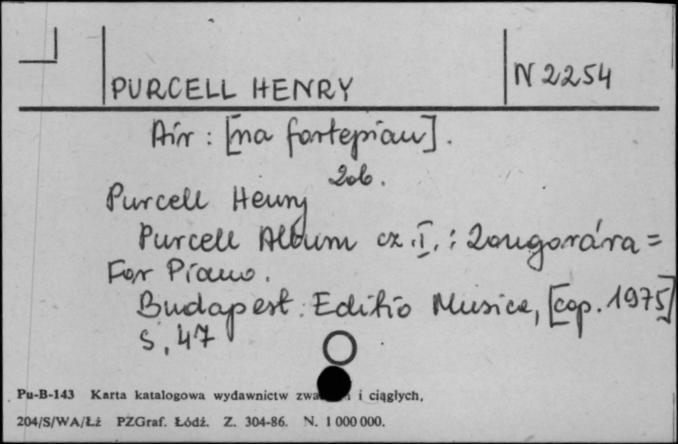 PURCELL HENRY
N 2254
Air : [na fortepian].
Zob.
Purcell Henry
Purcell Album cz. I. : Zongorára =
For Piano.
Budapest : Editio Musica, [cop. 1975]
S. 47
Pu-B-143 Karta katalogowa wydawnictw i ciągłych,
204/S/WA/Łż PZGraf. Łódź. Z. 304-86. N. 1 000 000.